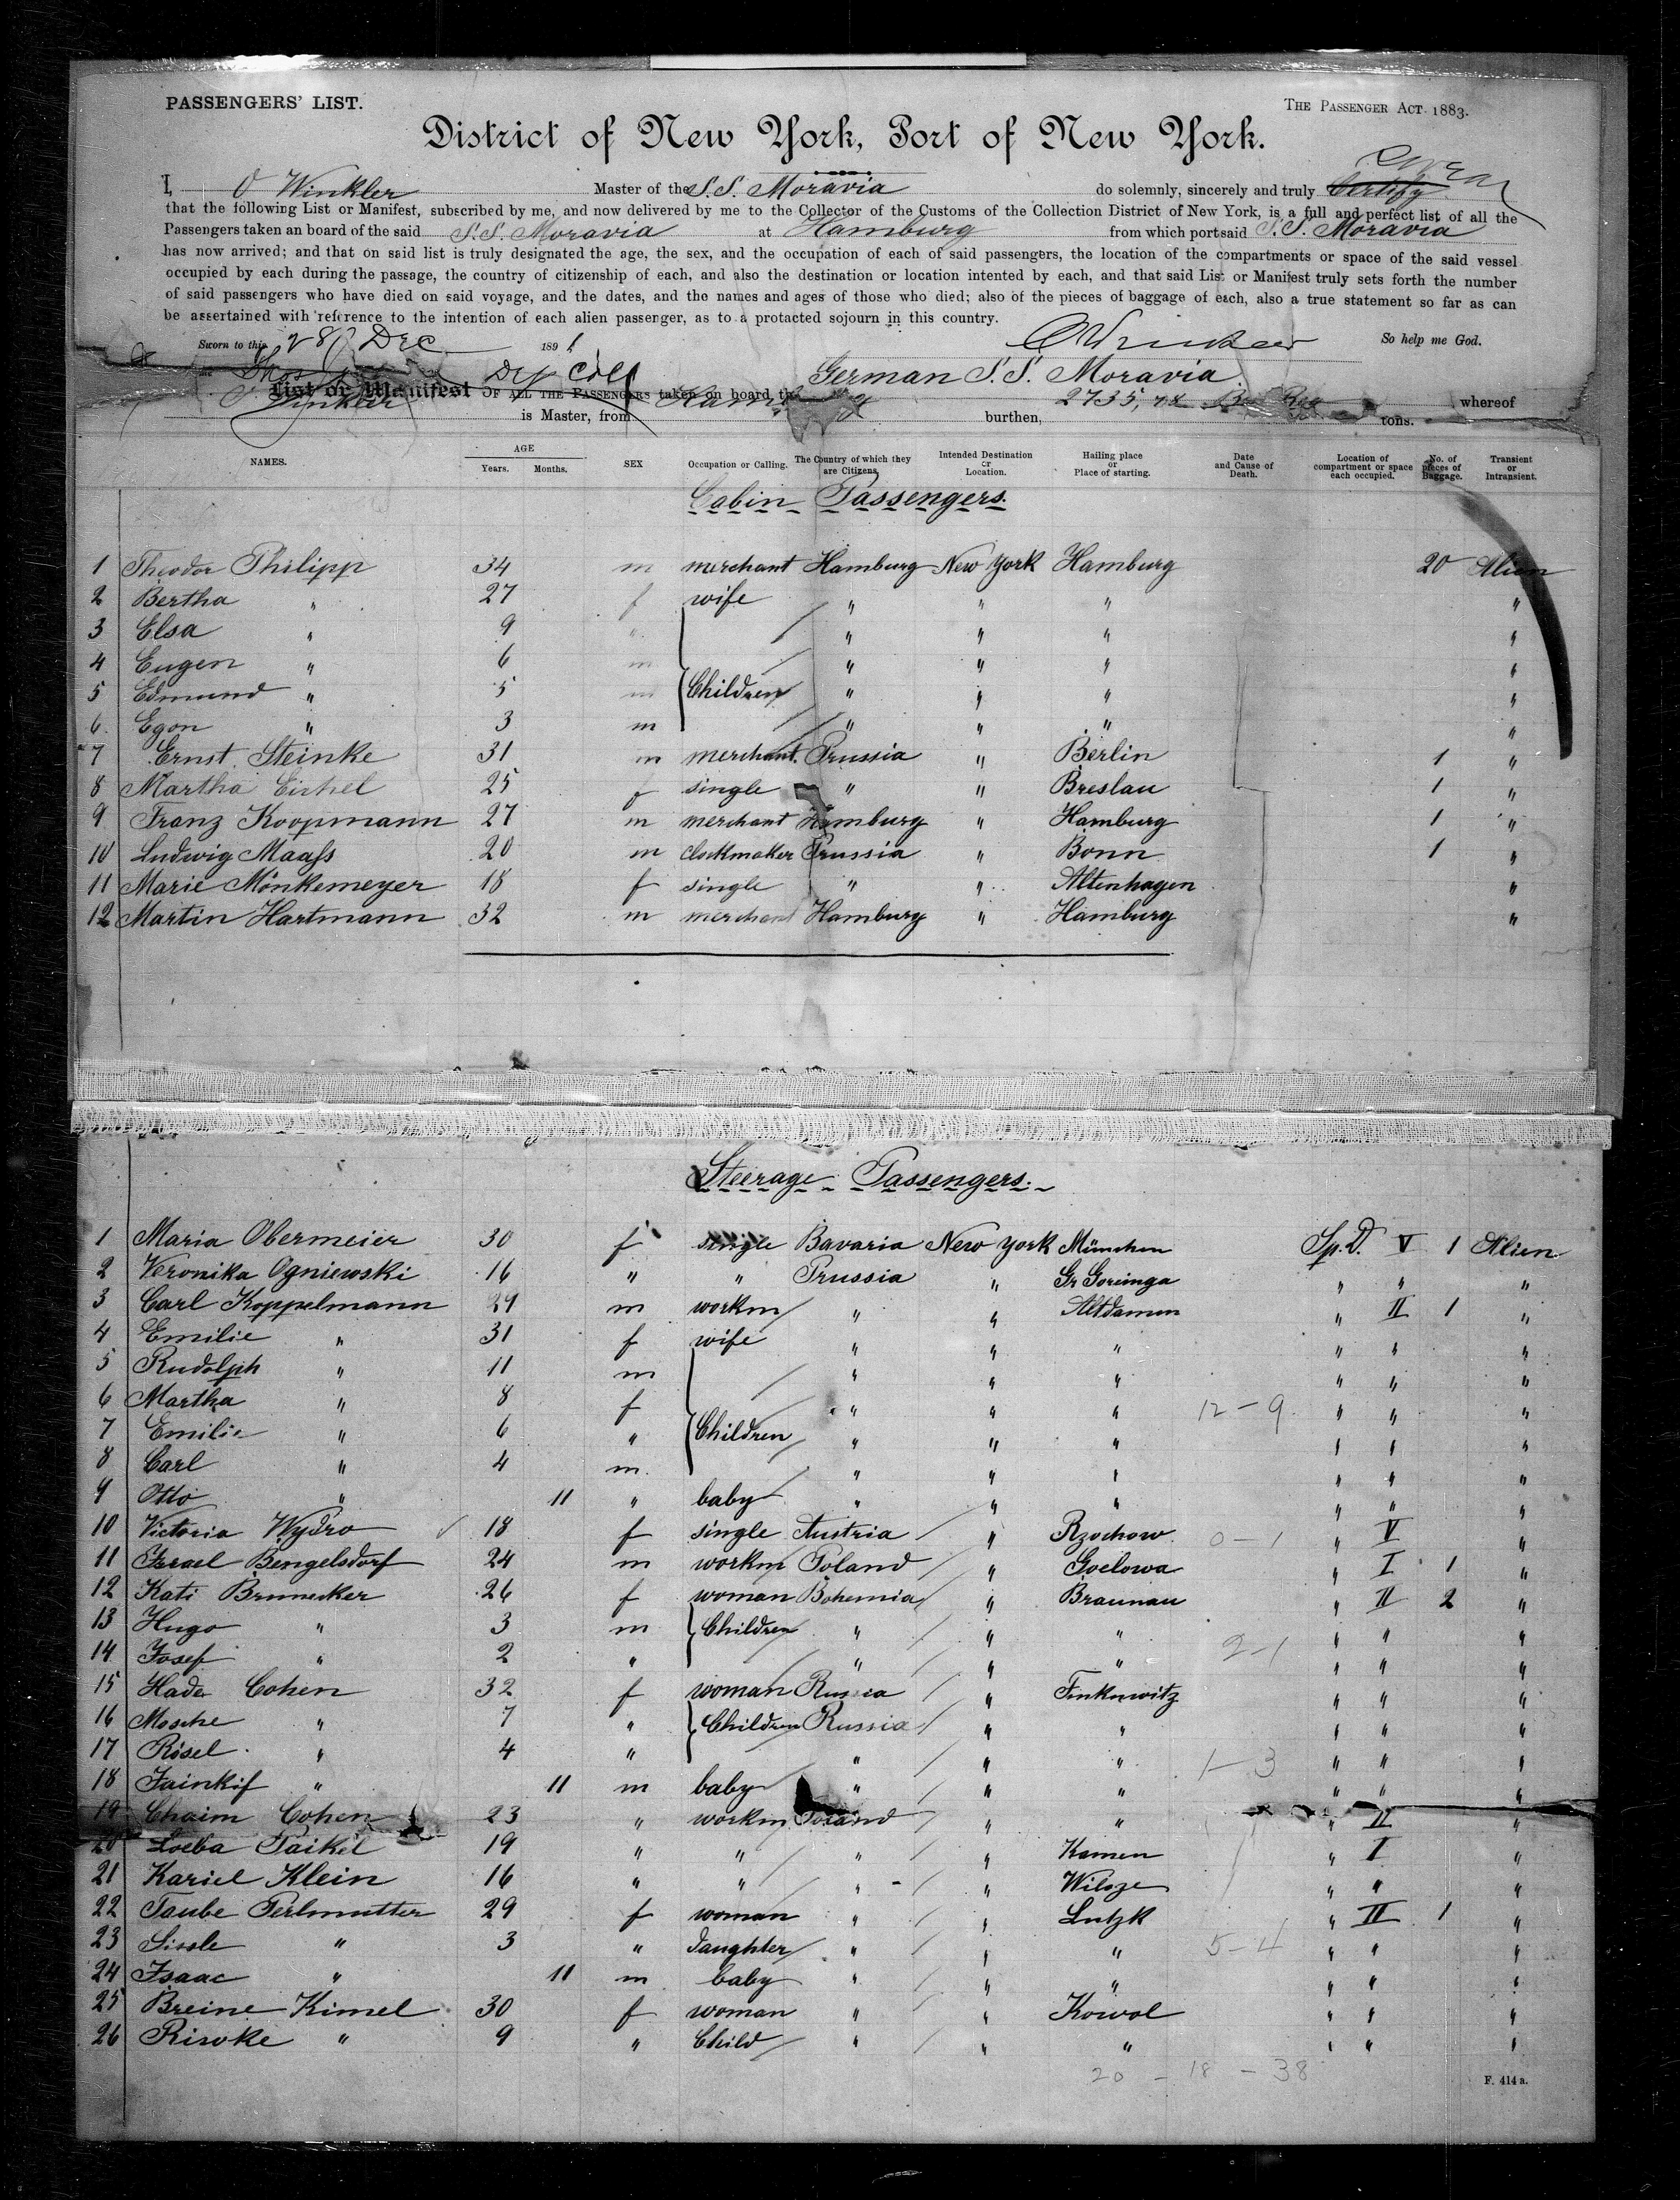 PASSENGERS' LIST.
THE PASSENGER ACT 1883.
District of New York, Port of New York.
I, O Winkler Master of the S.S. Moravia do solemnly, sincerely and truly Certify Swear
that the following List or Manifest, subscribed by me, and now delivered by me to the Collector of the Customs of the Collection District of New York, is a full and perfect list of all the
Passengers taken an board of the said S.S. Moravia at Hamburg from which port said S.S. Moravia
has now arrived; and that on said list is truly designated the age, the sex, and the occupation of each of said passengers, the location of the compartments or space of the said vessel
occupied by each during the passage, the country of citizenship of each, and also the destination or location intented by each, and that said List or Manifest truly sets forth the number
of said passengers who have died on said voyage, and the dates, and the names and ages of those who died; also of the pieces of baggage of each, also a true statement so far as can
be assertained with reference to the intention of each alien passenger, as to a protacted sojourn in this country.
Sworn to this 28 Dec 1891 O Winkler So help me God.
Dep Coll
List or Manifest OF ALL THE PASSENGERS taken on board the German S.S. Moravia whereof
Winkler is Master, from Hamburg burthen, 2735, tons.
NAMES. AGE Years. Months. SEX Occupation or Calling. The Country of which they are Citizens. Intended Destination or Location. Hailing place or Place of starting. Date and Cause of Death. Location of compartment or space each occupied. No. of pieces of Baggage. Transient or Intransient.
Cabin Passengers.
1 Theodor Philipp 34 m merchant Hamburg New York Hamburg 20 Alien
2 Bertha " 27 f wife " " " "
3 Elsa " 9 " " " " "
4 Eugen " 6 m " " " "
5 Edmund " 5 m Children " " " "
6 Egon " 3 m " " " "
7 Ernst Steinke 31 m merchant Prussia " Berlin 1 "
8 Martha Eichel 25 f single " " Breslau 1 "
9 Franz Koopmann 27 m merchant Hamburg " Hamburg 1 "
10 Ludwig Maaſs 20 m clockmaker Prussia " Bonn 1 "
11 Marie Mönkemeyer 18 f single " " Altenhagen "
12 Martin Hartmann 32 m merchant Hamburg " Hamburg "
Steerage Passengers.
1 Maria Obermeier 30 f single Bavaria New York München Sp.D. V 1 Alien
2 Veronika Ogniewski 16 " " Prussia " Gr " " "
3 Carl Koppelmann 29 m workm " " Altdamm " II 1 "
4 Emilie " 31 f wife " " " " " "
5 Rudolph " 11 m " " " " " "
6 Martha " 8 f " " " 12-9 " " "
7 Emilie " 6 " Children " " " " " "
8 Carl " 4 m " " " " " "
9 Otto " 11 " baby " " " " " "
10 Victoria Wydro 18 f single Austria " Rzochow 0-1 " V "
11 Israel Bengelsdorf 24 m workm Poland " Goelowa " I 1 "
12 Kati Brunecker 26 f woman Bohemia " Braunau " II 2 "
13 Hugo " 3 m Children " " " " " "
14 Josef " 2 " " " " 2-1 " " "
15 Hade Cohen 32 f woman Russia " " " "
16 Mosche " 7 " Children Russia " " " " "
17 Rösel " 4 " " " " 1-3 " " "
18 Jainkif " 11 m baby " " " " " "
19 Chaim Cohen 23 " workm Poland " " " II "
20 Loeba Paikel 19 " " " " Kamen " I "
21 Kariel Klein 16 " " " " " " "
22 Taube Perlmutter 29 f woman " " Lutzk " II 1 "
23 Sissle " 3 " daughter " " " 5-4 " " "
24 Isaac " 11 m baby " " " " " "
25 Breine Kimel 30 f woman " " Kowol " " "
26 Riwke " 9 " Child " " " " " "
20 - 18 - 38
F. 414 a.